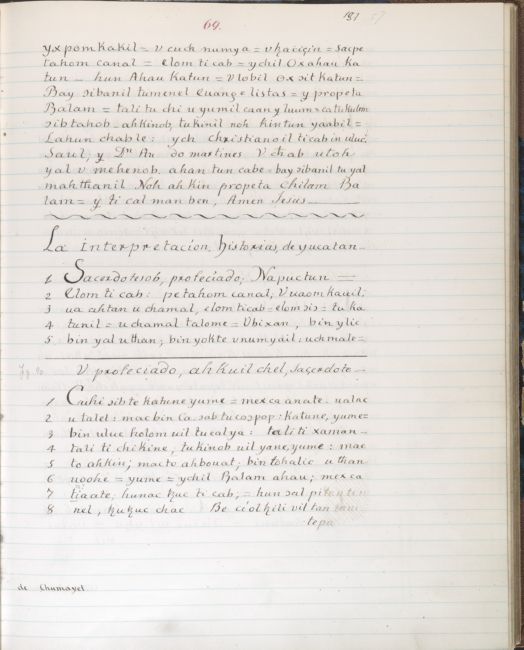 69.
181 57
yxpomkakil = v cuch numya = v haciçin = sacpe
tahom canal = elom ti cab = ychil Oxahau ka
tun _ hun Ahau katun = v lobil ox sit katun =
Bay sibanil tumenel Euange = listas = y propeta
Balam = tali tu chi u yumil caan y luum = ca tu kulom
sib tahob _ ahkinob, tukinil noh hintun yaabil =
Lahun chable: ych christianoil ti cab in uluc
Saul; y Dn An do martines V chab utoh
yal v mehenob, ahan tun cabe = bay sibanil tu yal
mahthanil Noh ahkin propeta Chilam Ba
lam = y ti cal man ben, Amen Jesus
La interpretacion, historias, de yucatan _
1 Sacerdotesob, profeciado; Napuctun =
2 Elom ti cab: petahom canal; Vuaom kauil;
3 ua ahtan uchamal, elom ti cab = elom sis = tu ka
4 tunil = uchamal talome = Vbixan, bin ylic
5 bin yal u than; bin yokte v numyail: uchmale =
V profeciado, ahkuil chel, Sacerdote _
1 Cuhi sib te katune yume = mex ca anate ualac
2 u talel: mac bin Ca sab tu cos pop: katune, yume =
3 bin uluc holom uil tucal ya: tali ti xaman _
4 tali ti chikine, tukinob uil yane, yume: mac
5 to ahkin; mac to ahbouat; bin tohalic u than
6 uoohe = yume = ychil Balam ahau; mex ca
7 tiaate; hunac tzuc ti cab; = hun sal
8 nel, kukuc chac Be ci olkili vil tan
tepa
de Chumayel.